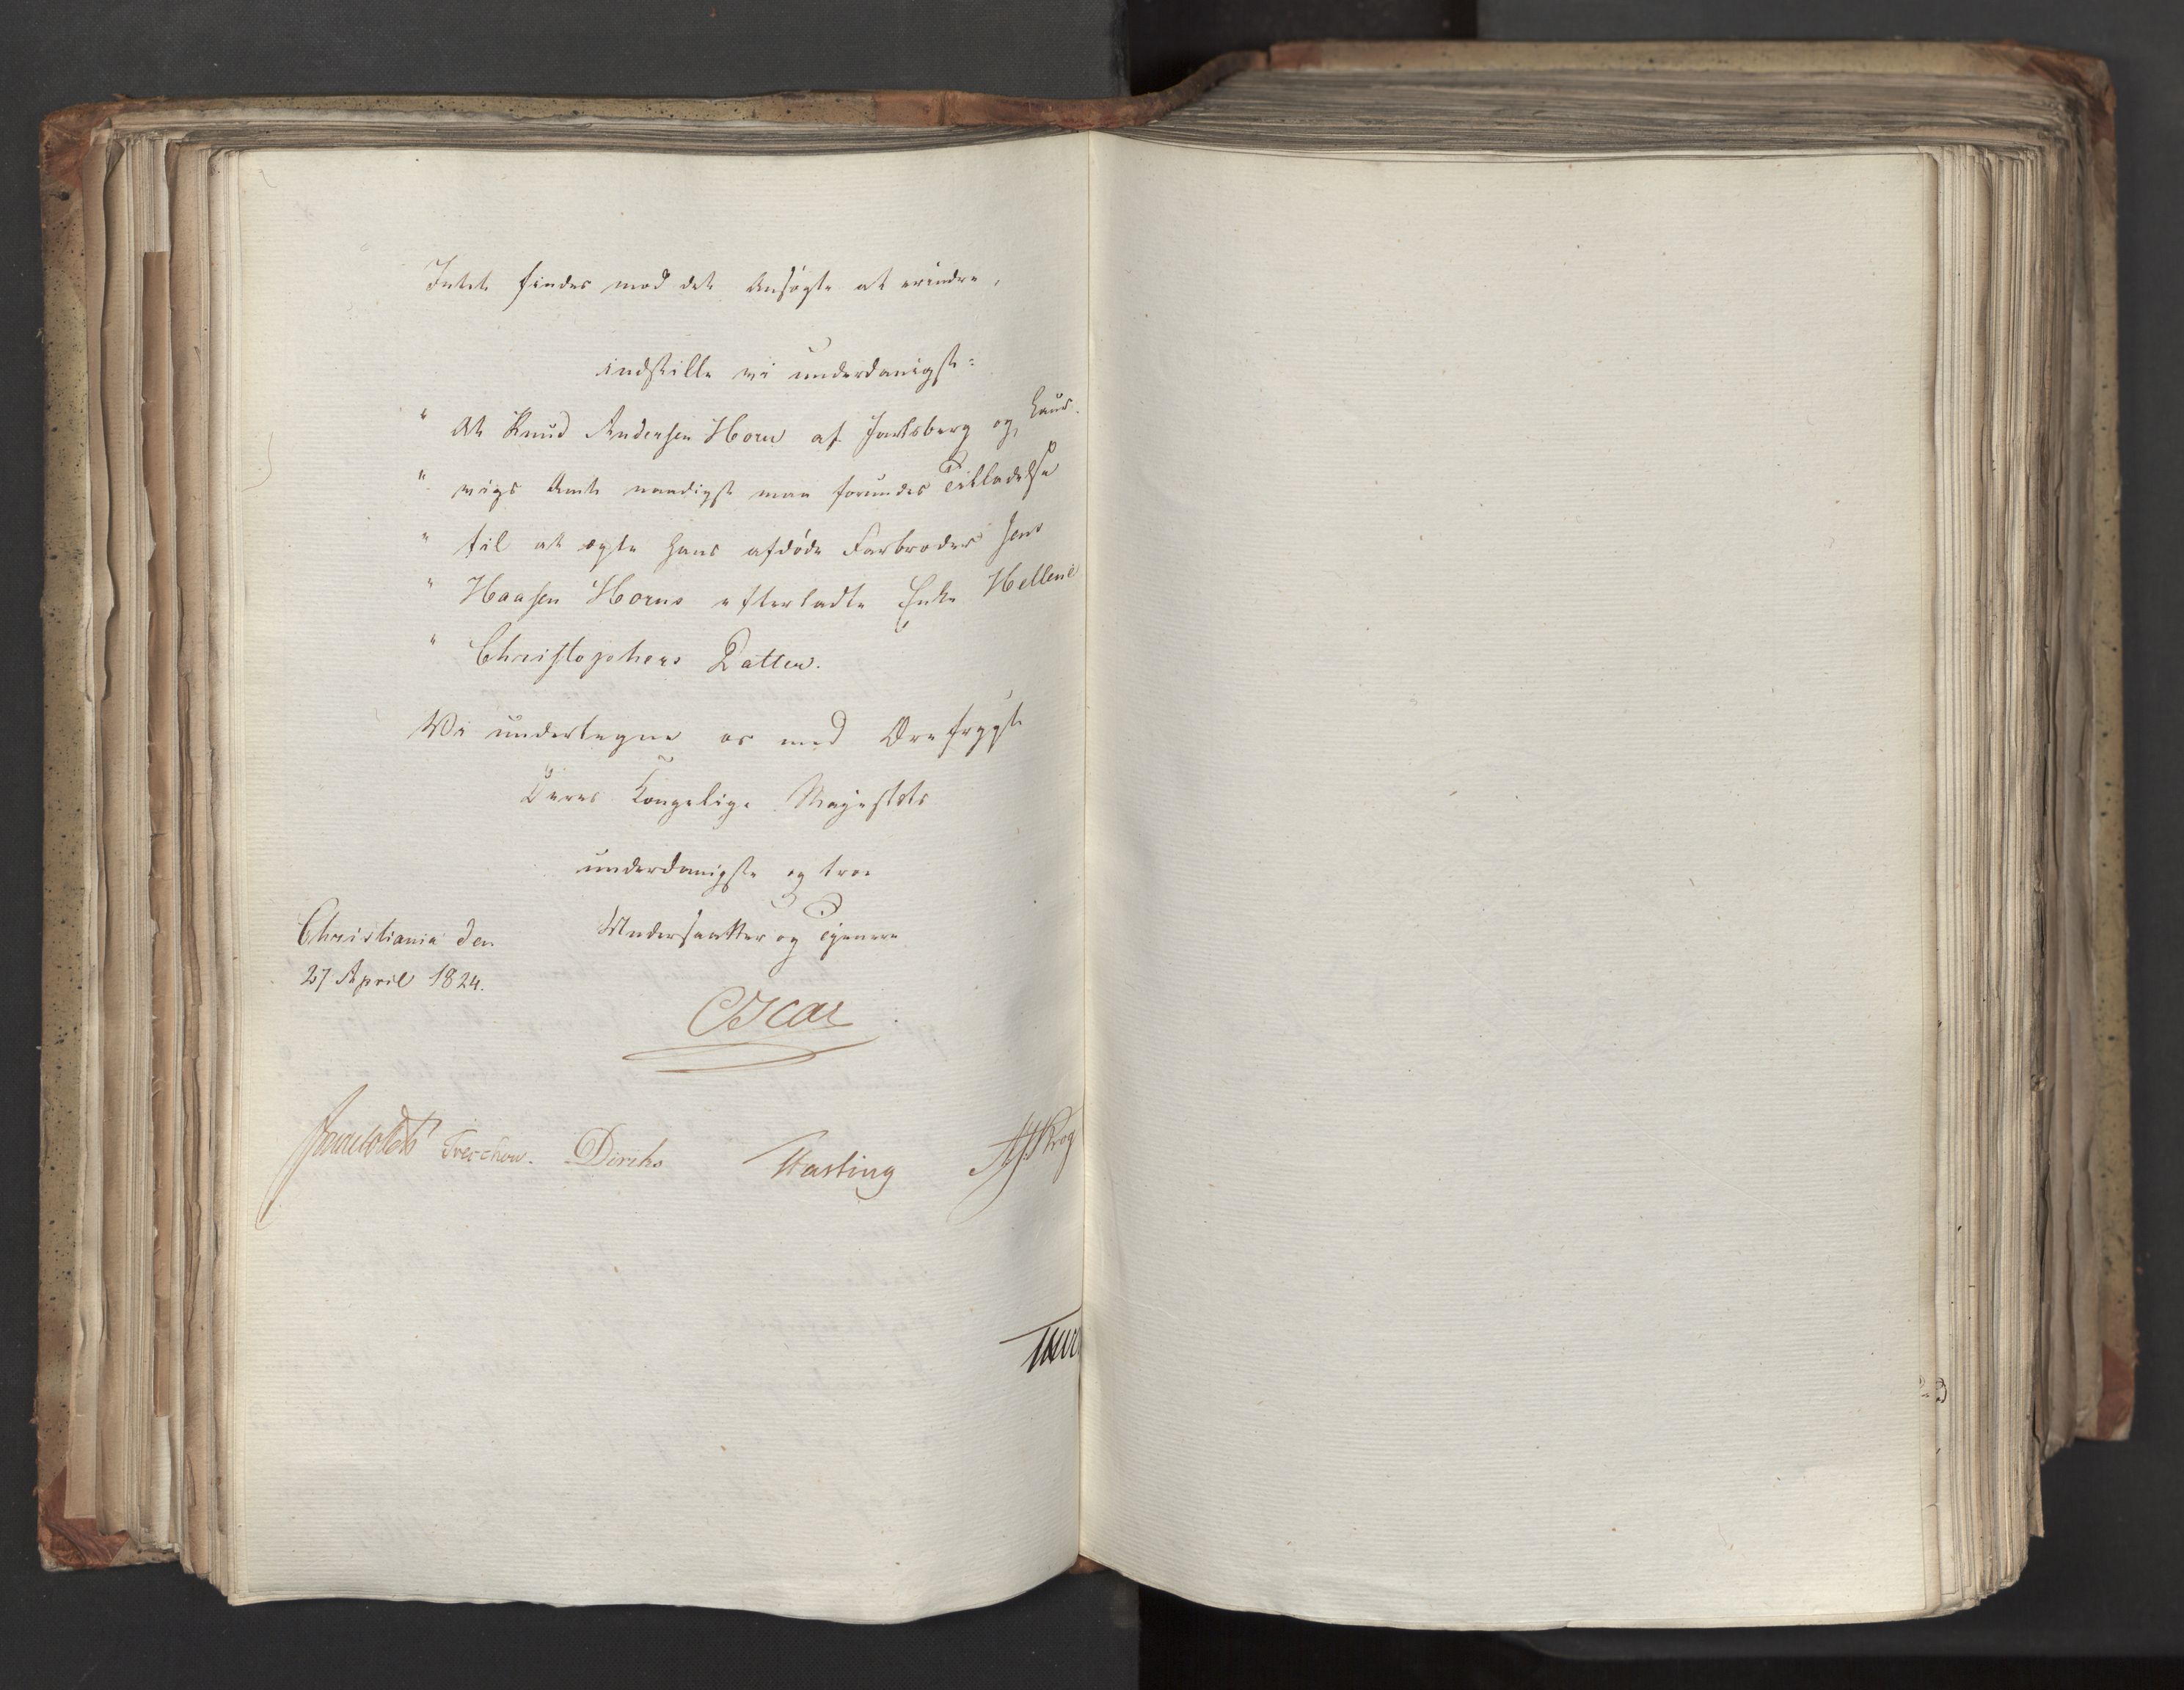 Intet findes mod det Ansøgte at erindre,
indstille vi underdanigst:
" At Knud Andersen Horn af Jarlsberg og Laur-
" vigs Amt naadigst maa forundes Tilladelse
" til at ægte hans afdøde Farbroder Jens
" Haasen Horns efterladte Enke Hellene
" Christophers Datter.
Vi undertegne os med Ærefrygt
Deres Kongelige Majestæts
underdanigste og troe
Undersaatter og Tjenere
Christiania den
27 April 1824.
Oscar
Sommerhielm Treschow. Diriks Fasting Krog